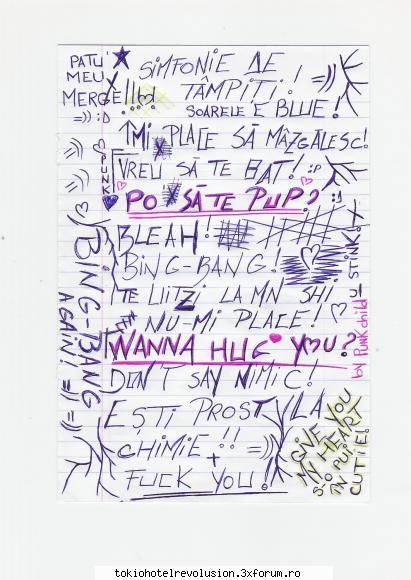 PATU'
MEU
MERGE!!!
=)) :D
SIMFONIE DE
TÂMPIȚI! =))
SOARELE E BLUE!
ÎMI PLACE SĂ MÂZGĂLESC!
VREU SĂ TE BAT! :P
PO SĂ TE PUP? :)
BLEAH!
BING-BANG!
TE UIȚI LA MN SHI
NU-MI PLACE!
WANNA HUG YOU?
DON'T SAY NIMIC!
EȘTI PROST LA
CHIMIE!! =))
+
FUCK YOU!
=)) =)) PUNK
BING-BANG
AGAIN! =)) =))
by Punkchild
GIVE YOU
MY HEART
S-O PUI
IN
CUTIE!
tokiohotelrevolusion.3xforum.ro